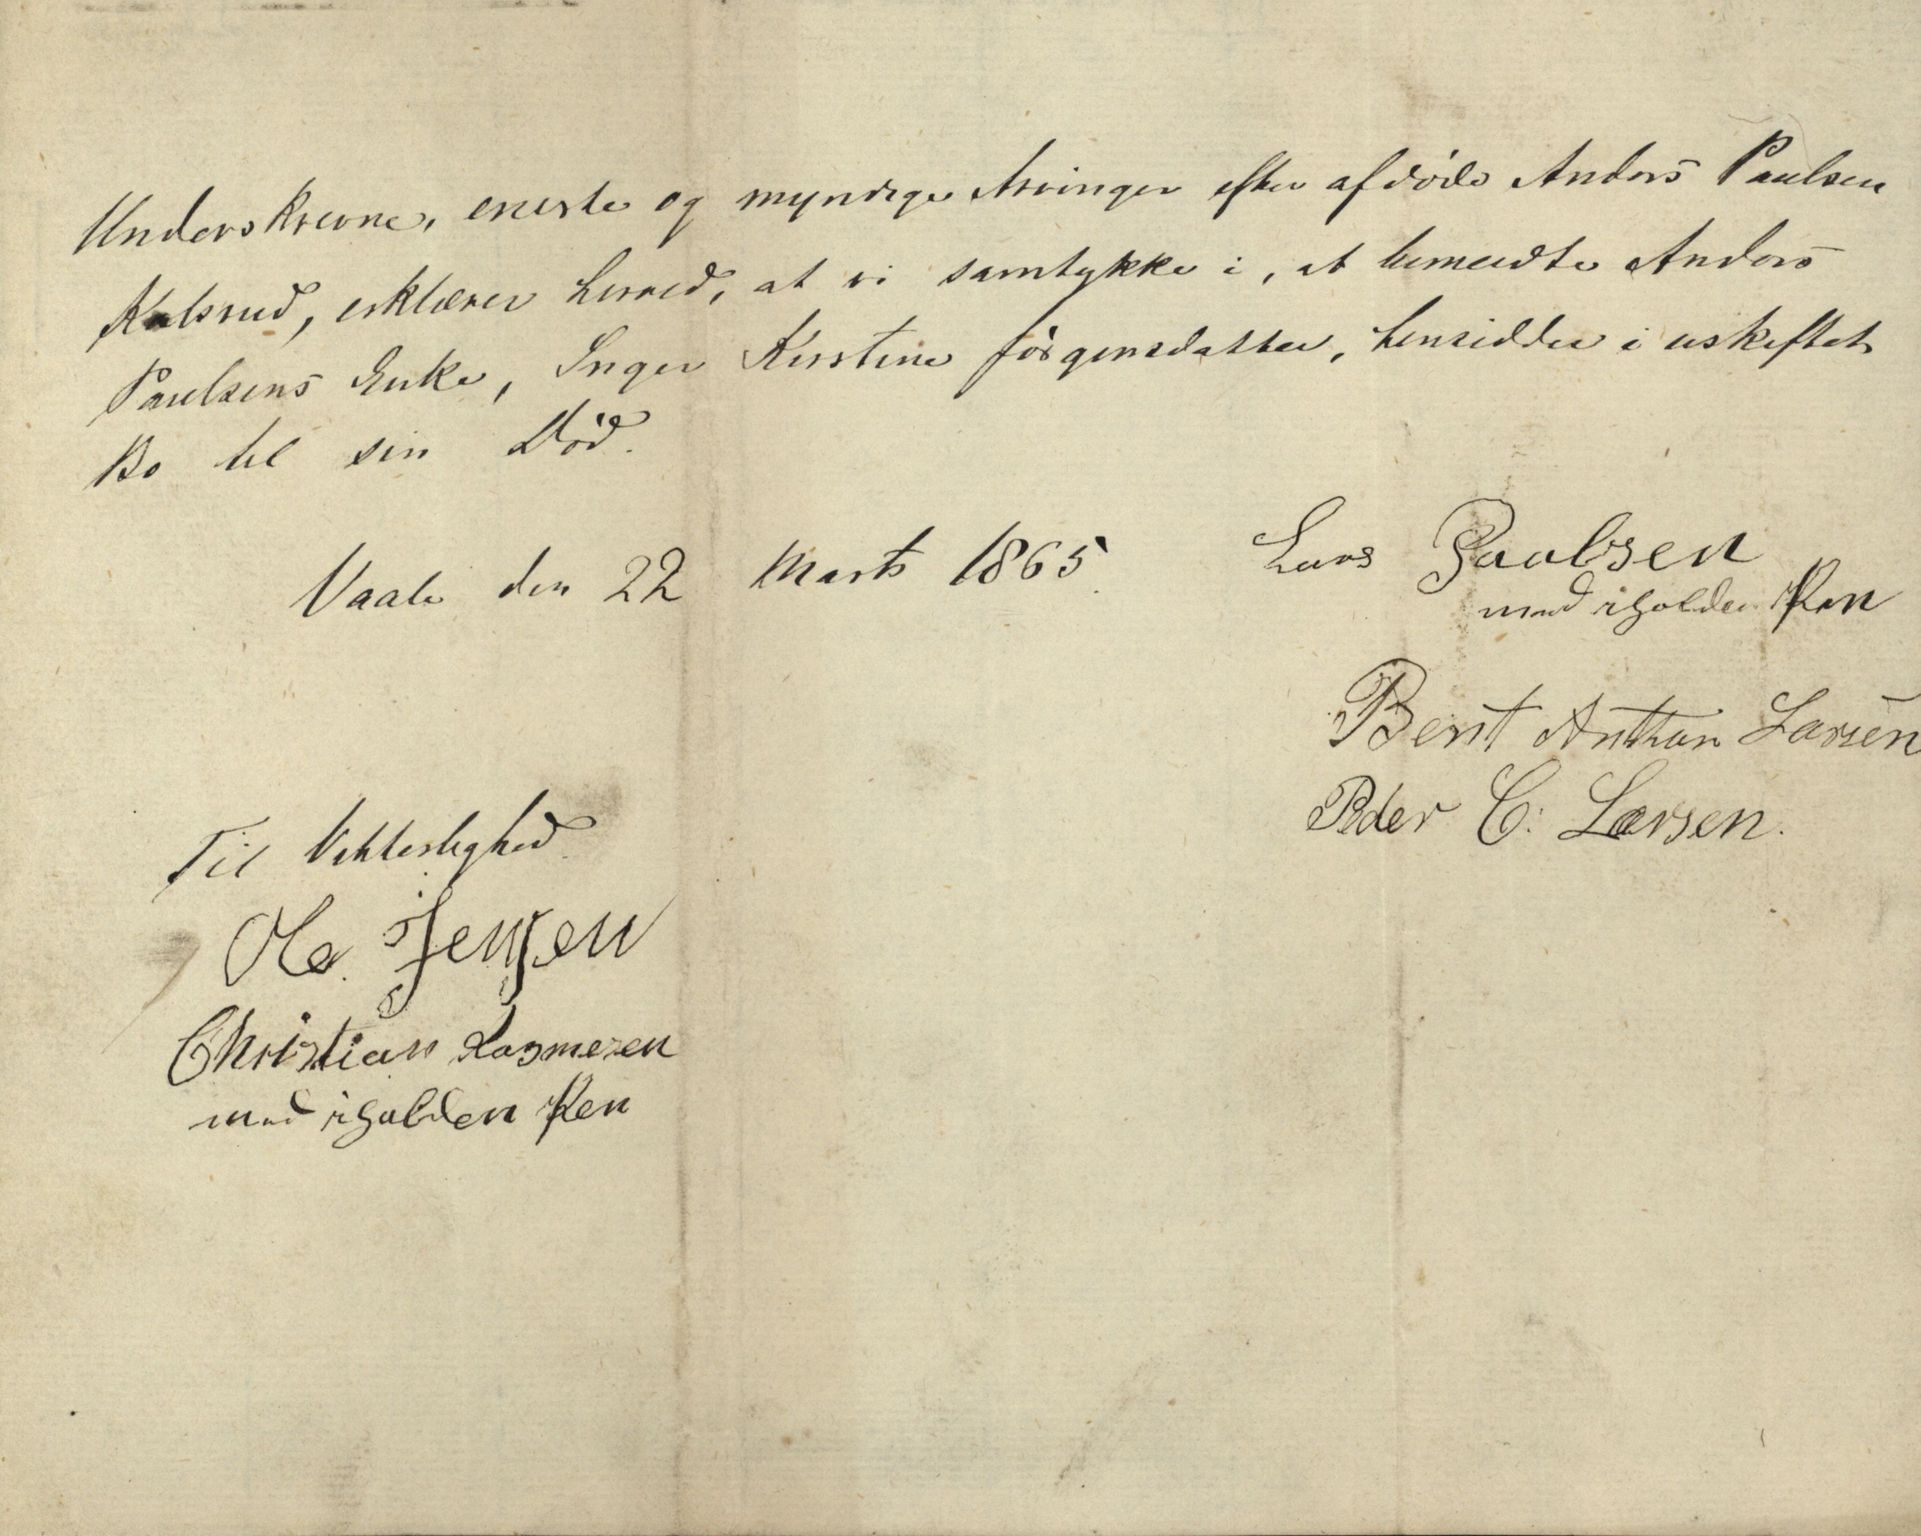 Underskrevne, eneste og myndige Arvinger efter afdøde Anders Paulsen
Kalsrud, erklærer herved, at vi samtykke i, at bemeldte Anders
Paulsens Enke, Inger Kirstine Jörgensdatter, hensidder i uskiftet
Bo til sin Död.
Vaale den 22 Marts 1865.
Lars Paabsen
med iholden Pen
Bent Anthon Larsen
Peder C: Larsen.
Til Vitterlighed
Ole Jensen
Christian Rasmesen
med iholden Pen